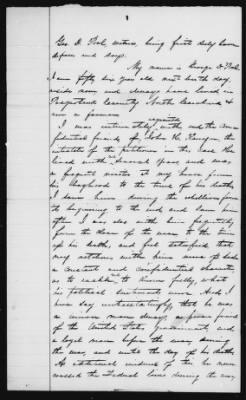 1
Geo. D. Pool, witness, being first duly sworn
deposes and says:
My name is George D. Pool
I am fifty six years old next birth day,
reside now and always have lived in
Pasquotank County North Carolina &
am a farmer
I was intimately acquainted with and the
friend of John H. Perry, the
intestate of the petitioner in this case. He
lived with several years and was
a frequent visitor at my house from
his boyhood to the time of his death,
I saw him during the rebellion from
the beginning to the end and saw him
after I was also with him frequently
from the close of the war to the time
of his death, and feel satisfied that
my relations with him were of such
a constant and confidential character
as to enable me to know fully what
his political sentiments were. And I
here say unhesitatingly, that he was
a union man always a firm friend
of the United States government and
a loyal man before the war, during
the war and until the day of his death,
As external evidence of this he never
crossed the Federal lines during the war